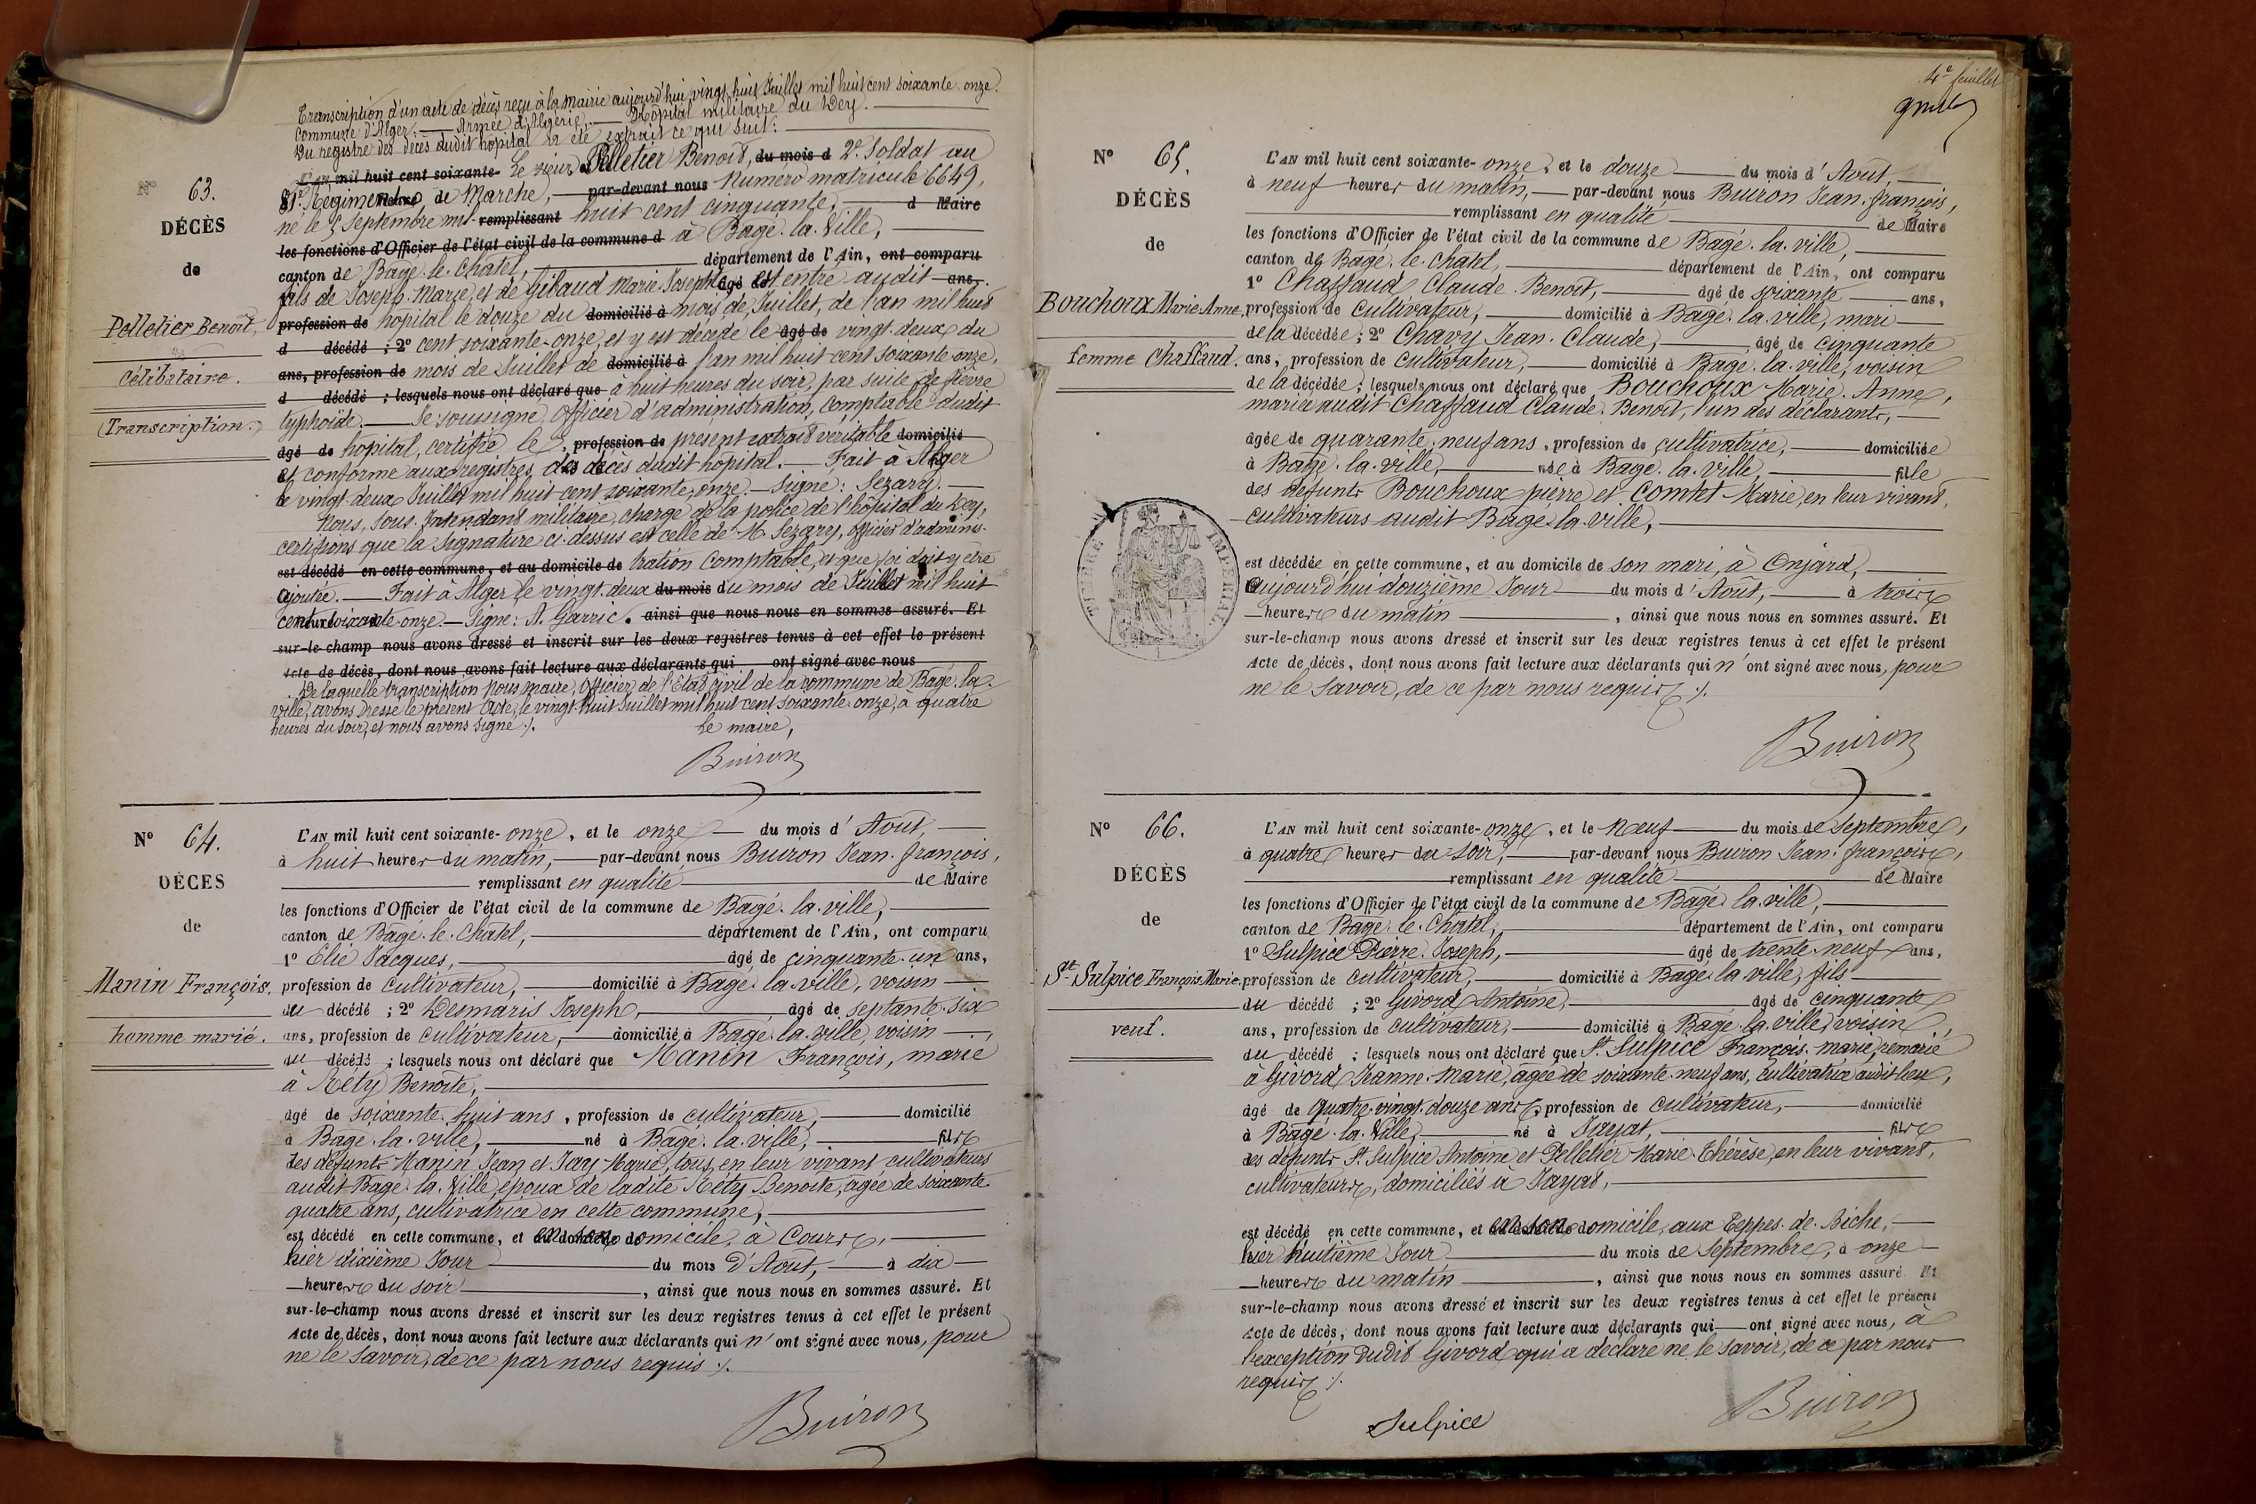 Transcription d'un acte de décès reçu à la mairie aujourd'hui vingt huit Juillet mil huit cent soixante-onze.
Commune d'Alger. — Armée d'Algérie. — Hôpital militaire du Dey.
Du registre des décès dudit hôpital a été extrait ce qui suit:
N° 63.
DÉCÈS
de
Pelletier Benoît,
célibataire.
(Transcription.)
L'AN mil huit cent soixante- Le sieur Pelletier Benoît, du mois d 2e Soldat au
81e Régiment de Marche, par-devant nous Numéro matricule 6649,
né le 5 Septembre mil remplissant huit cent cinquante, d Maire
les fonctions d'Officier de l'état civil de la commune d à Bagé-la-Ville,
canton de Bagé-le-Chatel, département de l'Ain, ont comparu
fils de Joseph-Marie, et de Gibaud Marie Josephte âgé de est entré audit ans,
profession de hôpital le douze du domicilié à mois de Juillet, de l'an mil huit
d décédé ; 2° cent soixante-onze, et y est décédé le âgé de vingt-deux du
ans, profession de mois de Juillet de domicilié à l'an mil huit cent soixante-onze,
d décédé ; lesquels nous ont déclaré que à huit heures du soir, par suite de fièvre
typhoïde. — Je soussigné, Officier d'administration, Comptable dudit
âgé de hôpital, certifie le , profession de présent extrait véritable domicilié
et conforme aux registres des décès dudit hôpital. — Fait à Alger
le vingt-deux Juillet mil huit cent soixante-onze. — Signé: Sézary. —
Nous, Sous-Intendant militaire, chargé de la police de l'hôpital du Dey,
certifions que la Signature ci-dessus est celle de M. Sézary, officier d'adminis-
est décédé en cette commune, et au domicile de tration Comptable, et que foi doit y être
ajoutée. — Fait à Alger le vingt-deux du mois du mois de Juillet mil huit
cent soixante-onze. — Signé: A. Garric. ainsi que nous nous en sommes assuré. Et
sur-le-champ nous avons dressé et inscrit sur les deux registres tenus à cet effet le présent
Acte de décès, dont nous avons fait lecture aux déclarants qui ont signé avec nous
De laquelle transcription Nous maire, Officier de l'Etat civil de la commune de Bagé-la-
ville, avons dressé le présent acte, le vingt-huit Juillet mil huit cent soixante-onze, à quatre
heures du soir, et nous avons signé ./.
Le maire,
Buiron
N° 64.
DÉCÈS
de
Manin François.
homme marié.
L'AN mil huit cent soixante-onze, et le onze du mois d'Août,
à huit heures du matin, par-devant nous Buiron Jean-françois,
remplissant en qualité de Maire
les fonctions d'Officier de l'état civil de la commune de Bagé-la-ville,
canton de Bagé-le-Chatel, département de l'Ain, ont comparu
1° Elie Jacques, âgé de cinquante-un ans,
profession de cultivateur, domicilié à Bagé-la-ville, voisin
du décédé ; 2° Desmaris Joseph, âgé de septante-six
ans, profession de cultivateur, domicilié à Bagé-la-ville, voisin
du décédé ; lesquels nous ont déclaré que Manin François, marié
à Réty Benoîte,
âgé de soixante-huit ans, profession de cultivateur, domicilié
à Bagé-la-ville, né à Bagé-la-ville, fils
des défunts Manin Jean et Jay Marie, tous en leur vivant cultivateurs
audit Bagé-la-Ville, époux de ladite Réty Benoîte, âgée de soixante-
quatre ans, cultivatrice en cette commune,
est décédé en cette commune, et en son domicile, à Cours,
hier dixième Jour du mois d'Août, à dix
heures du soir, ainsi que nous nous en sommes assuré. Et
sur-le-champ nous avons dressé et inscrit sur les deux registres tenus à cet effet le présent
Acte de décès, dont nous avons fait lecture aux déclarants qui n'ont signé avec nous, pour
ne le savoir, de ce par nous requis ./.
Buiron
4e feuillet
N° 65.
DÉCÈS
de
Bouchoux Marie-Anne,
femme Chaffaud.
TIMBRE IMPERIAL
L'AN mil huit cent soixante-onze, et le douze du mois d'Août,
à neuf heures du matin, par-devant nous Buiron Jean-françois,
remplissant en qualité de Maire
les fonctions d'Officier de l'état civil de la commune de Bagé-la-ville,
canton de Bagé-le-Chatel, département de l'Ain, ont comparu
1° Chaffaud Claude-Benoît, âgé de soixante ans,
profession de cultivateur, domicilié à Bagé-la-ville, mari
de la décédée ; 2° Chavy Jean-Claude, âgé de cinquante
ans, profession de cultivateur, domicilié à Bagé-la-ville, voisin
de la décédée ; lesquels nous ont déclaré que Bouchoux Marie-Anne,
mariée audit Chaffaud Claude-Benoît, l'un des déclarants,
âgée de quarante-neuf ans, profession de cultivatrice, domiciliée
à Bagé-la-ville, née à Bagé-la-ville, fille
des défunts Bouchoux pierre et Comtet Marie, en leur vivant,
cultivateurs audit Bagé-la-ville,
est décédée en cette commune, et au domicile de son mari, à Onjard,
aujourd'hui douzième Jour du mois d'Août, à trois
heures du matin, ainsi que nous nous en sommes assuré. Et
sur-le-champ nous avons dressé et inscrit sur les deux registres tenus à cet effet le présent
Acte de décès, dont nous avons fait lecture aux déclarants qui n'ont signé avec nous, pour
ne le savoir, de ce par nous requis ./.
Buiron
N° 66.
DÉCÈS
de
St Sulpice François-Marie,
veuf.
L'AN mil huit cent soixante-onze, et le Neuf du mois de Septembre,
à quatre heures du soir, par-devant nous Buiron Jean-françois,
remplissant en qualité de Maire
les fonctions d'Officier de l'état civil de la commune de Bagé-la-ville,
canton de Bagé-le-Chatel, département de l'Ain, ont comparu
1° Sulpice Pierre-Joseph, âgé de trente-neuf ans,
profession de cultivateur, domicilié à Bagé-la-ville, fils
du décédé ; 2° Givord Antoine, âgé de cinquante
ans, profession de cultivateur, domicilié à Bagé-la-ville, voisin
du décédé ; lesquels nous ont déclaré que St Sulpice François-marie, remarié
à Givord Jeanne-Marie, âgée de soixante-neuf ans, cultivatrice audit lieu,
âgé de quatre-vingt-douze ans, profession de cultivateur, domicilié
à Bagé-la-Ville, né à Jayat, fils
des défunts St Sulpice Antoine et Pelletier Marie-Thérèse, en leur vivant,
cultivateurs, domiciliés à Jayat,
est décédé en cette commune, et en son domicile, aux Teppes-de-Biche,
hier huitième Jour du mois de Septembre, à onze
heures du matin, ainsi que nous nous en sommes assuré Et
sur-le-champ nous avons dressé et inscrit sur les deux registres tenus à cet effet le présent
Acte de décès, dont nous avons fait lecture aux déclarants qui ont signé avec nous, à
l'exception dudit Givord qui a déclaré ne le savoir, de ce par nous
requis ./.
Sulpice
Buiron